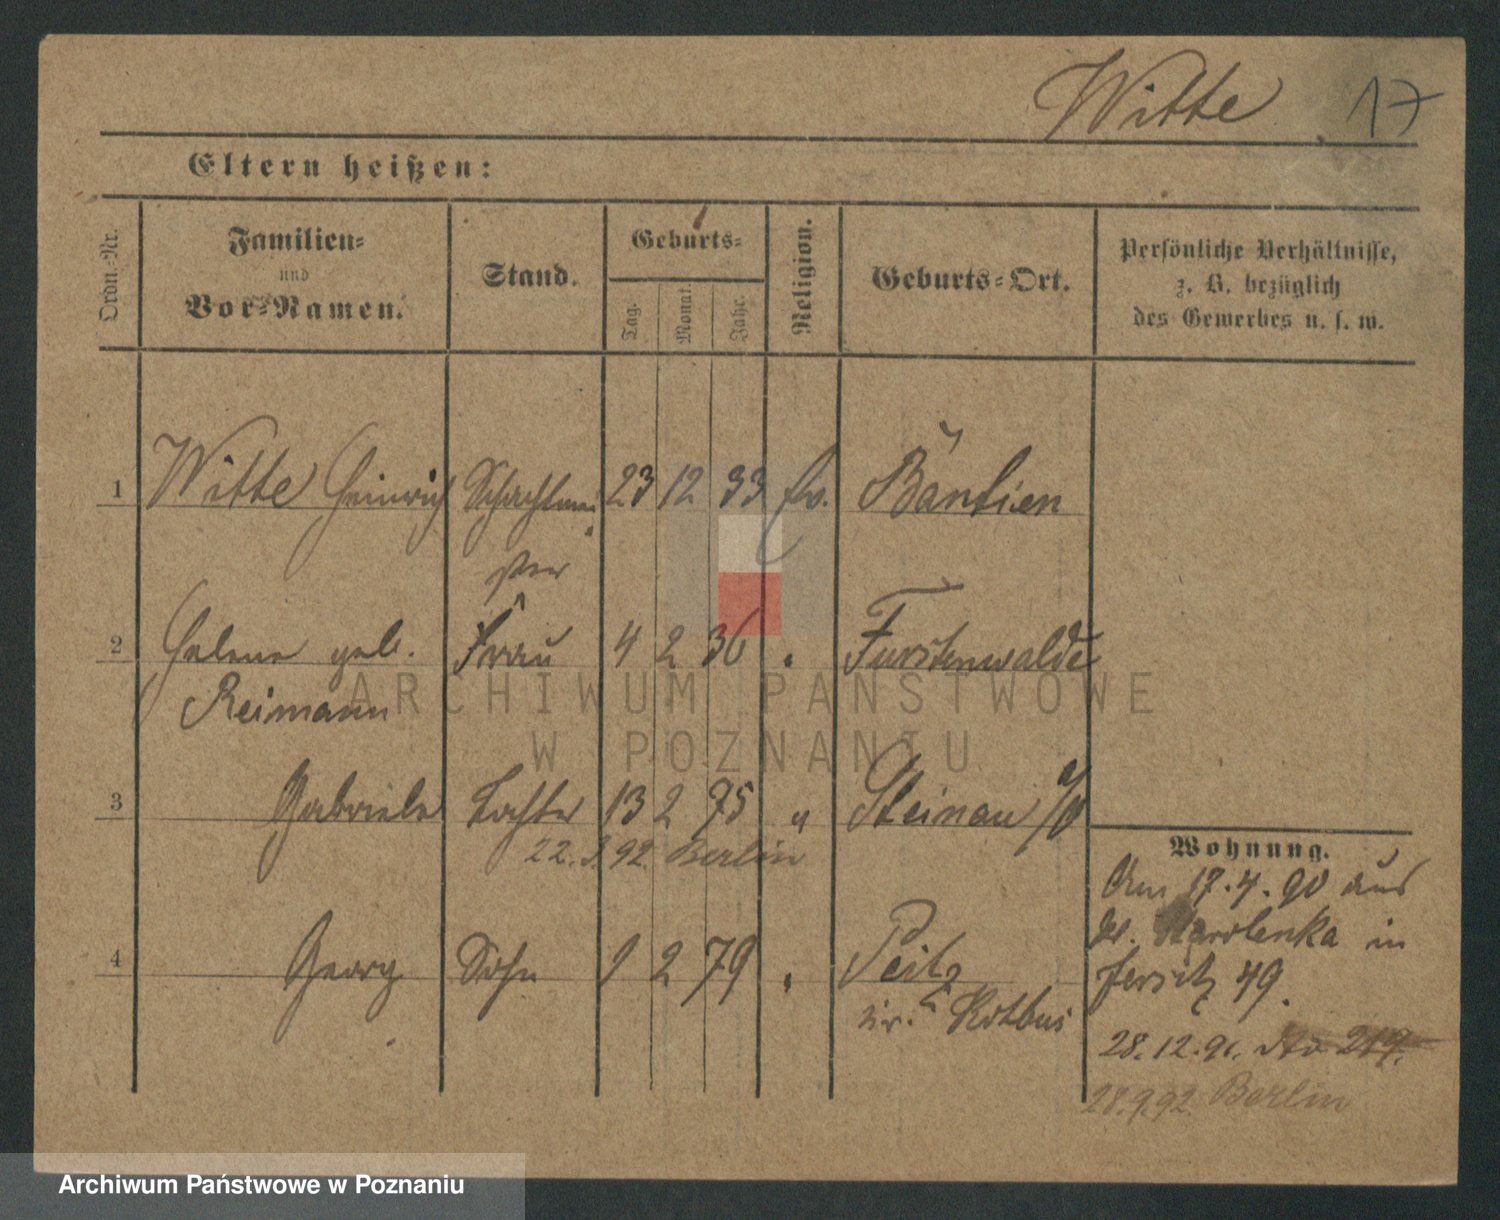 Witte 17
Eltern heißen:
Ordn.-Nr.
Familien-
und
Vor-Namen.
Stand.
Geburts-
Tag.
Monat.
Jahr.
Religion.
Geburts-Ort.
Persönliche Verhältnisse,
z. B. bezüglich
des Gewerbes u. s. w.
1 Witte Heinrich Schachtmei 23 12 33 Ev. Bäntien
ster
2 Helene geb. Frau 4 2 36 " Furstenwalde
Reimann
3 Gabriele Tochter 13 2 75 " Steinau a/O
22. 3. 92 Berlin
4 Georg Sohn 9 2 79 " Peitz
Kr. Kotbus
Wohnung.
Am 17.4.90 aus
Starolenka in
Jersitz 49.
28.12.91. dto 217.
28.9.92 Berlin
ARCHIWUM PAŃSTWOWE
W POZNANIU
Archiwum Państwowe w Poznaniu